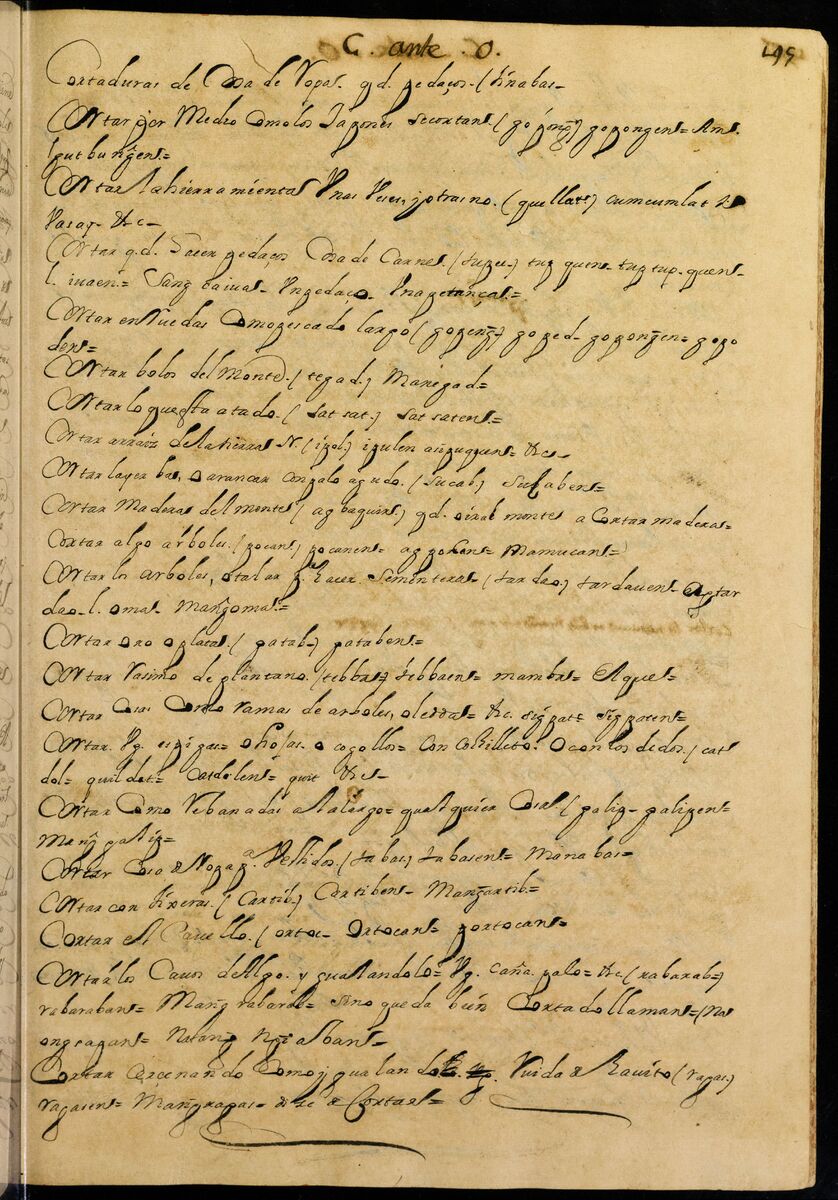 C. ante. O. 195
Cortaduras de Cosa de Ropas. q.d. pedaços. (tinabas=
Cortar por Medio Como los Japones se cortan (gopong) gopongen= Am.
putbungen=
Cortar la hierramienta Unas Veses, y otras no. (quellat) cumcumlat
Vasay. &c=
Cortar q.d. hacer pedaços Cosa de Carne. (tupu=) tup quen= tup tup. quen=
l. ivaen= Sang baiva= Un pedaço= Una petança=
Cortar en Ruedas Como pescado largo (gopeng) goped= gopongen= gopo
den=
Cortar bolos del monte. (tegad.) Manegad=
Cortar lo que esta atado. (satsat.) satsaten=
Cortar arraiz de la tierra N. (ipol.) ipulen &c=
Cortar layerbas, o arancar con palo agudo. (sucab.) sucaben=
Cortar Maderas del monte (agbaquir) q.d. oir al monte a Cortar maderas=
Cortar algo árboles. (pocan) pocanen= agpocan= Mamucan=
Cortar los arboles, o talar p.ª hacer Sementeras (tardao.) tardaven= Agtar
dao=l. oma= Mangoma=
Cortar oro o plata. (patab=) pataben=
Cortar Rasimo de plantano. (tebba) tebbaen= mamba= Aquel=
Cortar Cosas Como ramas de arboles, o leña= &c. sigpat= sigpaten=
Cortar. Vg. espigas= o hojas. o cogollos= con cuchilleto. o con los dedos. (cat
dol= quildet= Catdolen= quit &c=
Cortar Como Rebanadas a lo largo= qualquier Cosa. (palip= palipen=
Mangpalip=
Cortar Cosa de Ropa p.ª Vestidos. (tabas.) tabasen= Manabas=
Cortar con tixeras. (Cartib.) Cartiben= Mangartib=
Cortar el Cavello. (ortoc= Ortocan= portocan=
Cortar los Cavos de Algo. y gualandolo= Vg. Caña. palo= &c. (rabarab=)
rabaraban= Mang rabarab= sino queda bien Cortado llaman= (Na
ongsapan= Natang
Cortar Cercenando Como ygualando Ruida de Ravito (rapas.)
rapasen= Mangrapas= de Cortar=